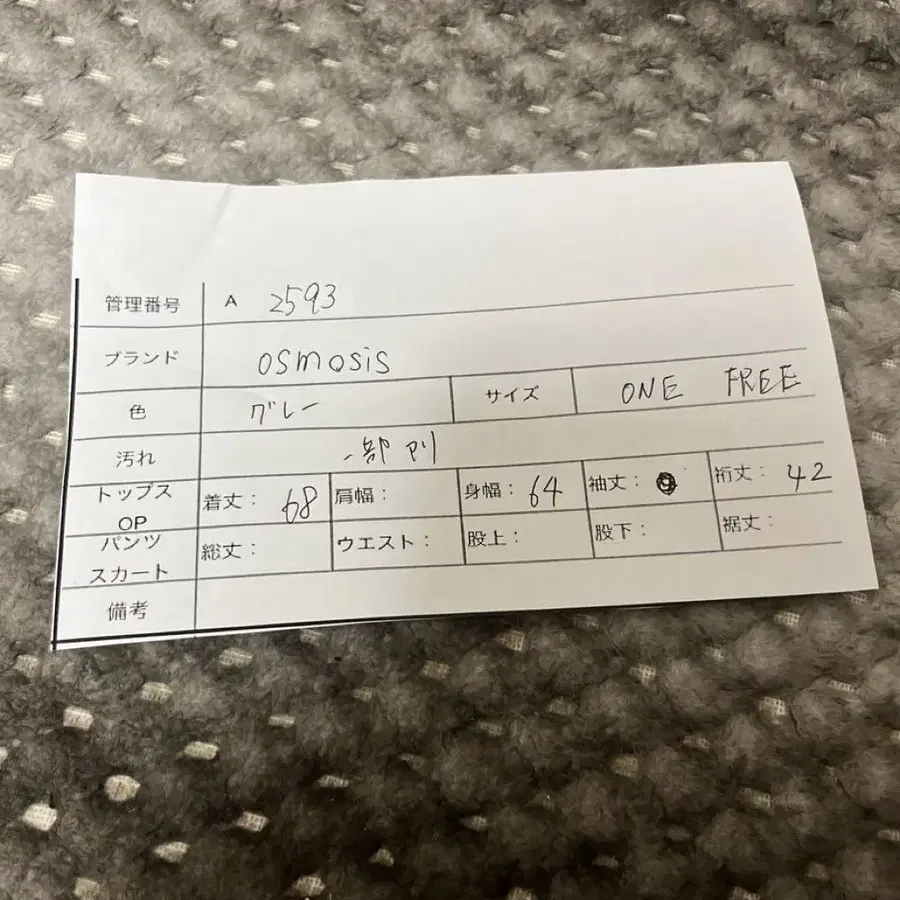 管理番号 A 2593
ブランド osmosis
色 グレー サイズ ONE FREE
汚れ 一部アリ
トップス OP 着丈： 68 肩幅： 身幅： 64 袖丈： 裄丈： 42
パンツ スカート 総丈： ウエスト： 股上： 股下： 裾丈：
備考